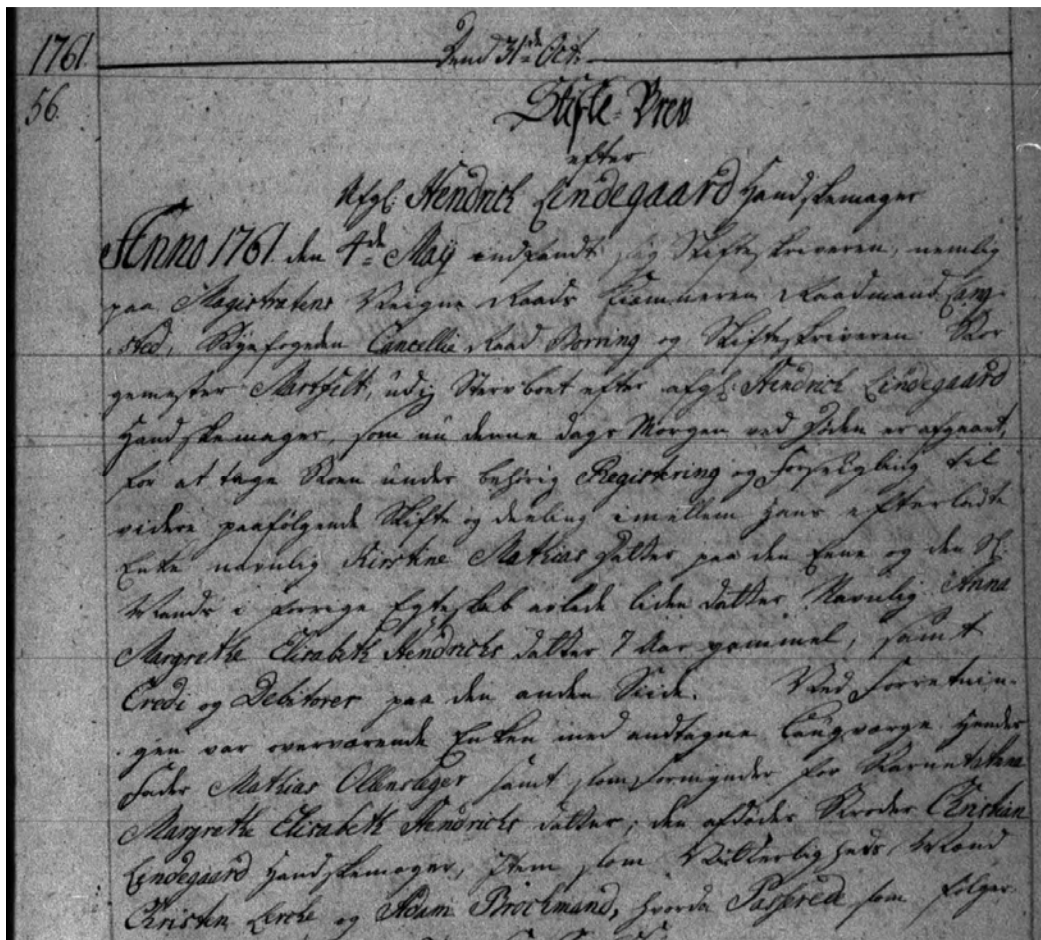 1761. Dend 31de Oct:
56. Skifte-Brev
efter
Afgl: Hendrich Lindegaard Handskemager
Anno 1761 den 4de Maÿ indfandt sig Skifteskriveren, nemlig
paa Magistratens Veigne Raads Raadmand Lang-
sted, Bÿefogeden Cancellie Raad Borring og Skifteskriveren Bor
gemester Martfelt, udj Sterv boet efter afgl: Hendrich Lindegaard
Handskemager, som nu denne dags Morgen ved Døden er afgaaet,
for at tage Boen under behørig Registering og Forseigling til
videre paafølgende Skifte og deeling imellem hans efterladte
Enke navnlig Kirstine Mathias Datter paa den Eene og den Sl:
Mands i forrige Egteskab avlede liden datter Navnlig Anna
Margrethe Elisabeth Hendrichs datter 7 Aar gammel, samt
Credi og Debitorer paa den anden Siide. Ved Forretnin-
gen var overværende Enken med andtagne Laugværge hendes
Fader Mathias Ollenslager samt som Formynder for Barnet Anna
Margrethe Elisabeth Hendrichs datter, den afdødes Broder Christian
Lindegaard Handskemager, Item som Vitterligheds Mænd
Christen Lerche og Adam Brochmand, hvorda Passered som følger